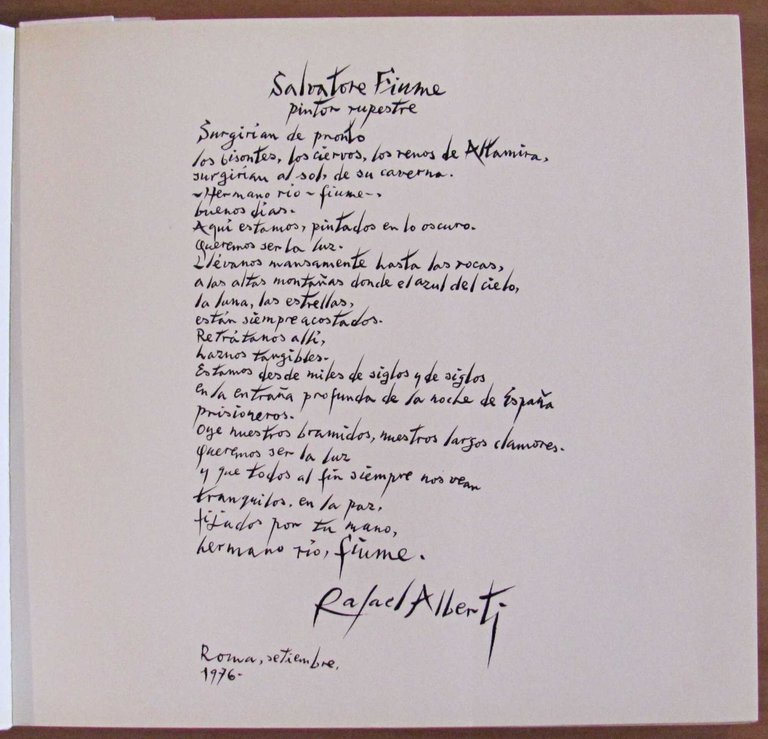 Salvatore Fiume
pintor rupestre
Surgirían de pronto
los bisontes, los ciervos, los renos de Altamira,
surgirían al sol, de su caverna.
-Hermano río -fiume-,
buenos días.
Aquí estamos, pintados en lo oscuro.
Queremos ser la luz.
Llévanos mansamente hasta las rocas,
a las altas montañas donde el azul del cielo,
la luna, las estrellas,
están siempre acostados.
Retrátanos allí,
haznos tangibles.
Estamos desde miles de siglos y de siglos
en la entraña profunda de la noche de España
prisioneros.
Oye nuestros bramidos, nuestros largos clamores.
Queremos ser la luz
y que todos al fin siempre nos vean
tranquilos, en la paz,
fijados por tu mano,
hermano río, fiume.
Rafael Alberti
Roma, setiembre,
1976-